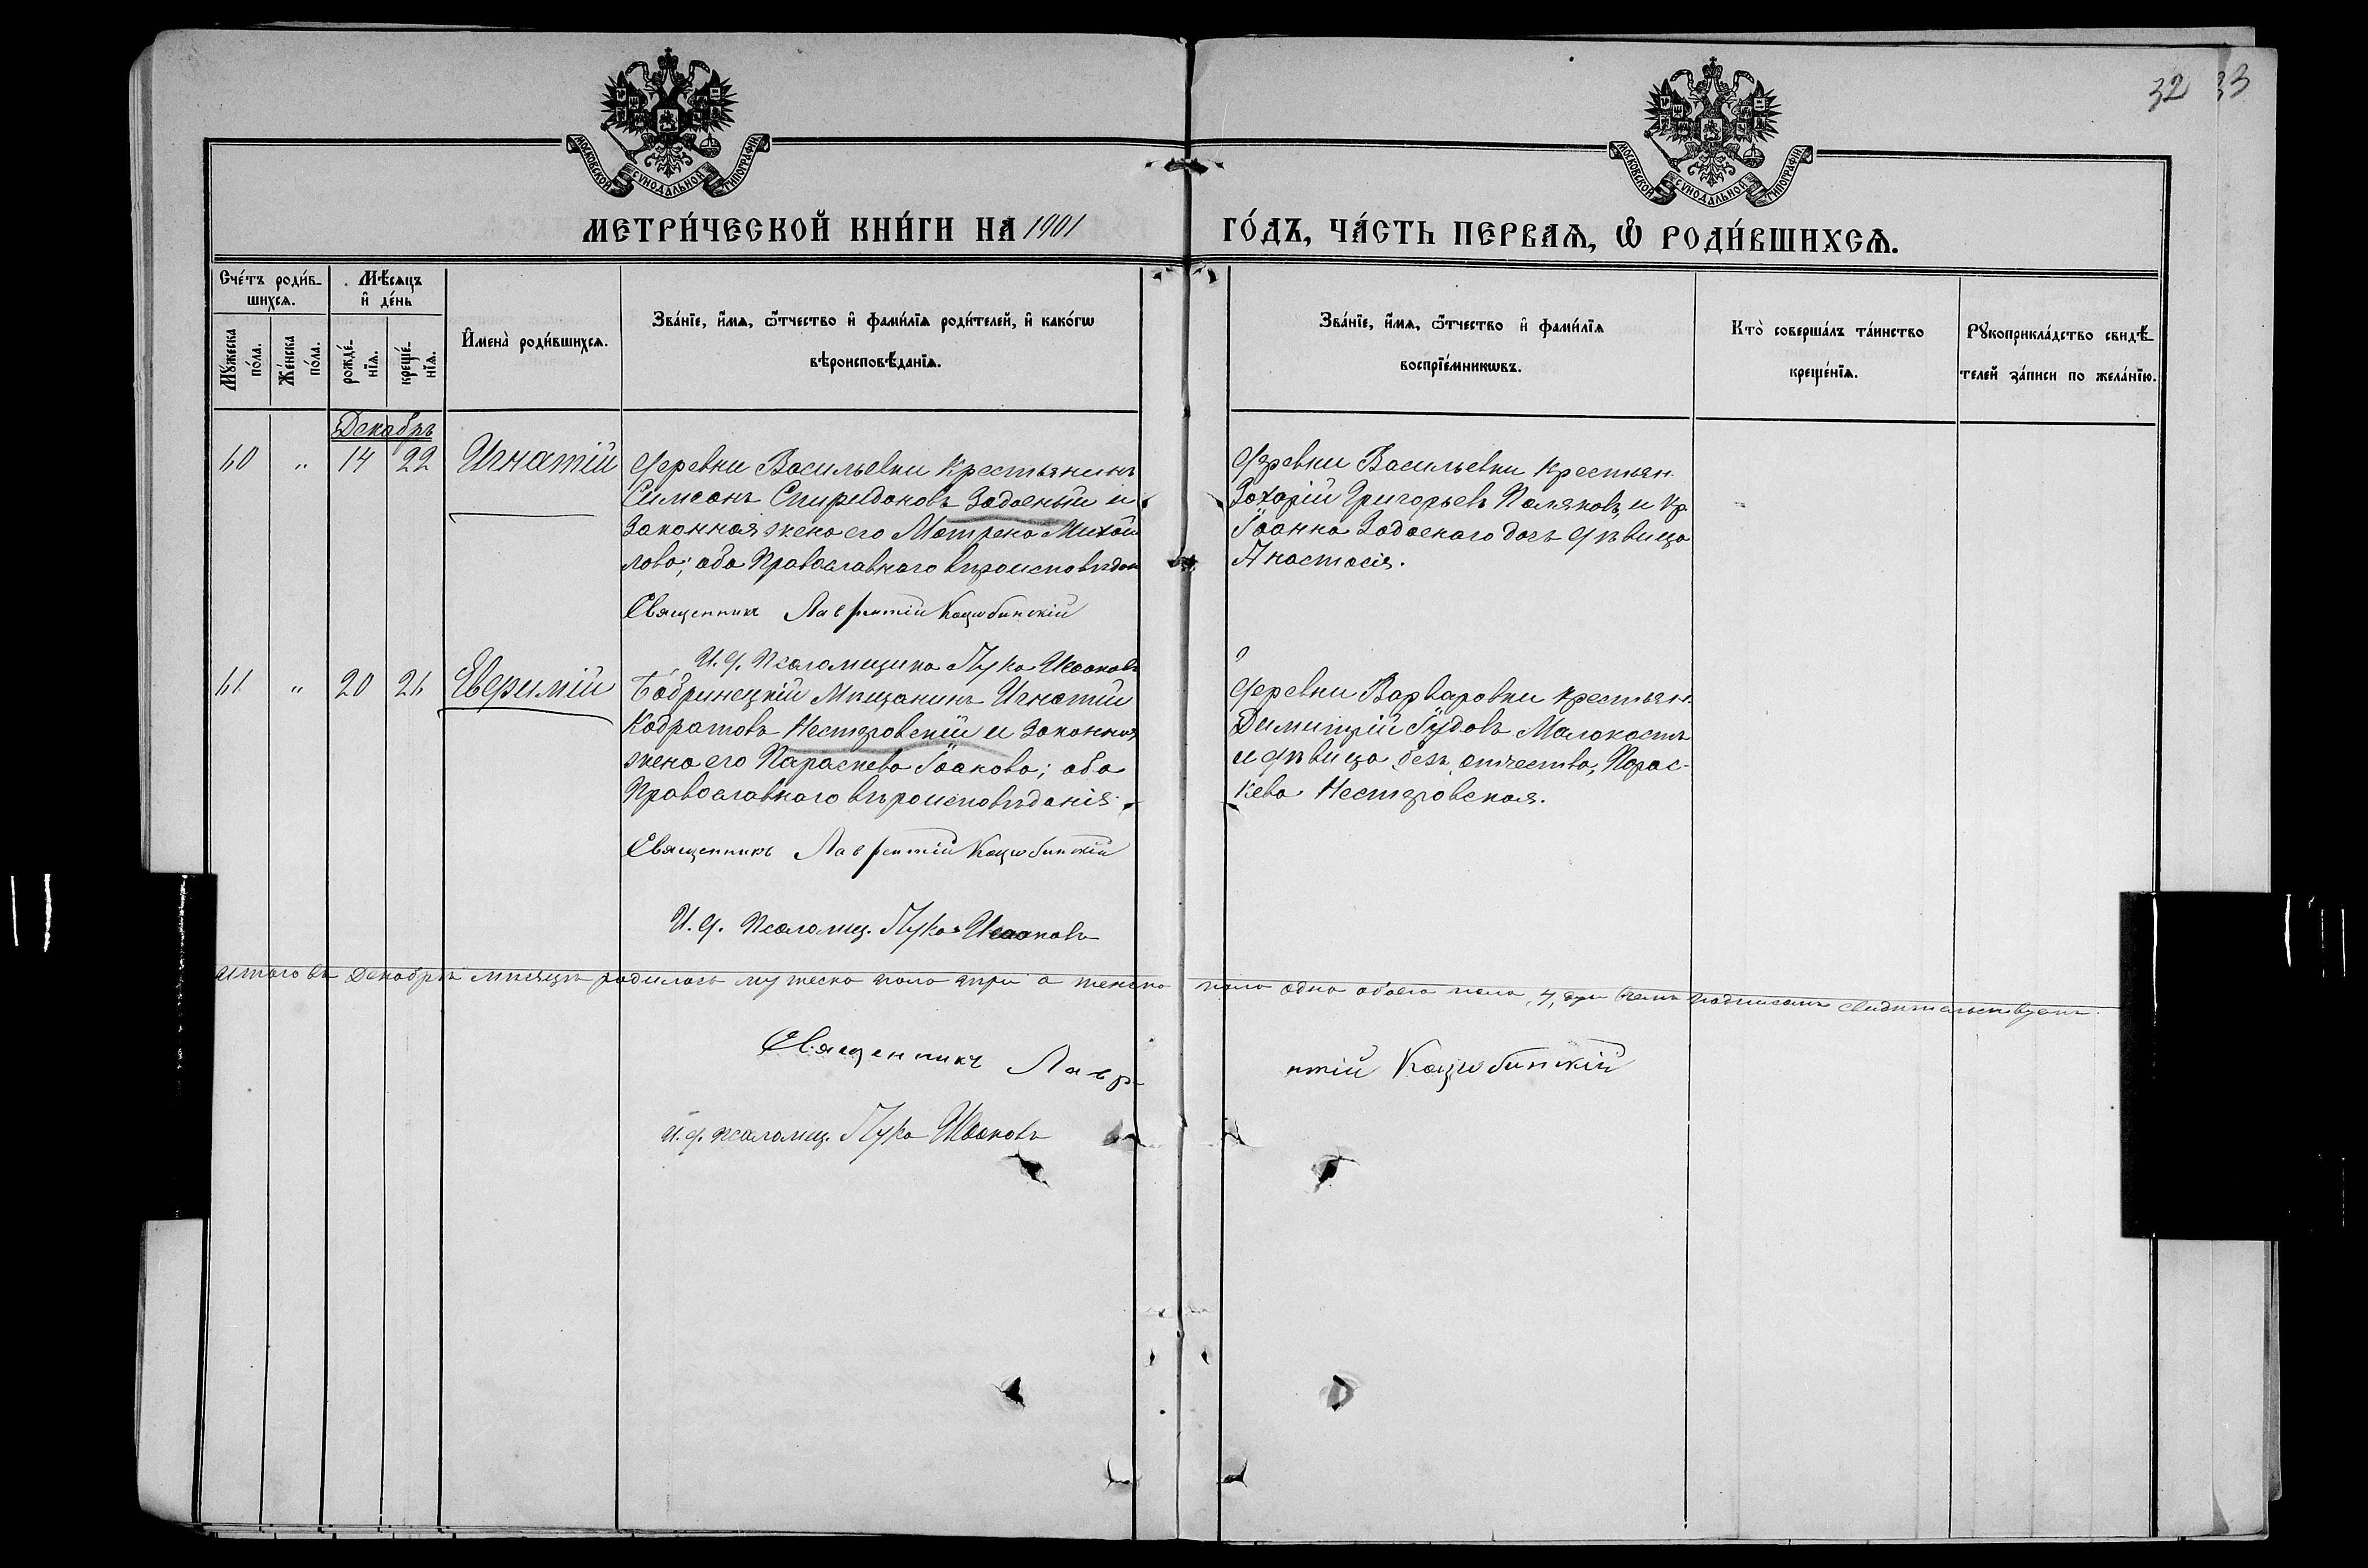 32 33
МОСКОВСКОЙ СУНОДАЛЬНОЙ ТИПОГРАФІИ
МОСКОВСКОЙ СУНОДАЛЬНОЙ ТИПОГРАФІИ
МЕТРИ́ЧЕСКОЙ КНИ́ГИ НА 1901 ГО́ДЪ, ЧА́СТЬ ПЕРВАѦ, Ѡ РОДИ́ВШИХСѦ.
Сче́тъ роди́в-
шихсѧ.
Мꙋжеска
по́ла.
Же́нска
по́ла.
Мѣ́сѧцъ
и҆ де́нь
рожде́-
нїѧ.
креще́-
нїѧ.
И҆мена̀ роди́вшихсѧ.
Зва́нїе, и҆́мѧ, ѻ҆́тчество и҆ фами́лїѧ роди́телей, и҆ како́гѡ
вѣроисповѣ́данїѧ.
Зва́нїе, и҆́мѧ, ѻ҆́тчество и҆ фами́лїѧ
воспрїе́мникѡвъ.
Кто̀ соверша́лъ та́инство
креще́нїѧ.
Рꙋкоприкла́дство свидѣ́-
телей за́писи по жела́нїю.
Декабрь
60 " 14 22 Игнатій
Деревни Васильевки крестьянинъ
Симеонъ Спиридоновъ Задоеный и
Законная жена его Матрена Михай
лова; оба Православнаго вѣроисповѣдан
Священникъ Лаврентій Коцюбинскій
И. д. Псаломщика Лука Ивановъ
Деревни Васильевки крестьян.
Захарій Григорьевъ Поляковъ, и кр
Іоанна Задоенаго дочь дѣвица
Анастасія.
61 " 20 26 Евѳимій
Бобринецкій Мѣщанинъ Игнатій
Кодратовъ Нестеровскій и Законная
жена его Параскева Іоакова; оба
Православнаго вѣроисповѣданія.
Священникъ Лаврентій Коцюбинскій
И. д. Псаломщ. Лука Ивановъ
Деревни Варваровки крестьян.
Димитрій Іудовъ Малокостъ
и дѣвица, безъ отчества, Парас-
кева Нестеровская.
Итого въ Декабрѣ мѣсяцѣ родилось мужеска пола три а женска пола одна обоего пола 4, въ чемъ подписомъ свидѣтельствуемъ.
Священникъ Лаврентій Коцюбинскій
И. д. псаломщ. Лука Ивановъ